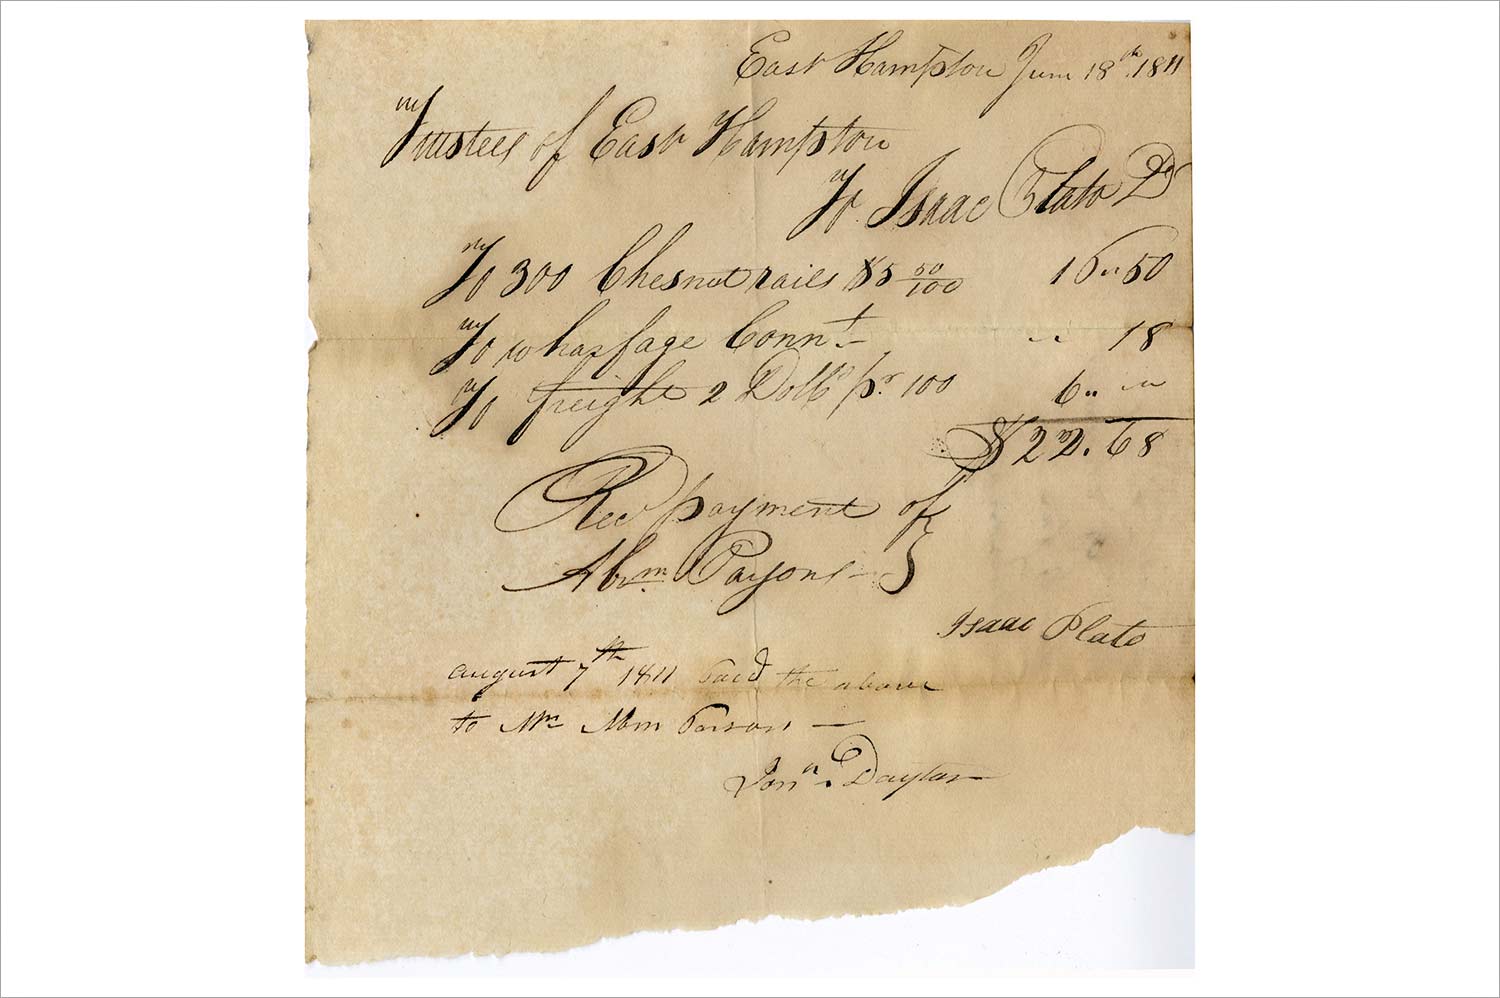 East Hampton June 18th 1811
Trustees of East Hampton
To Isaac Plato Dr
To 300 Chesnut rails $5 50/100 16 " 50
To wharfage Connt - " " 18
To freight 2 Dolls pr. 100 6 " "
$22.68
Recd payment of
Abrm Parsons -
Isaac Plato
august 7th 1811 Paid the above
to Mr Abm Parsons —
Jonn. Dayton